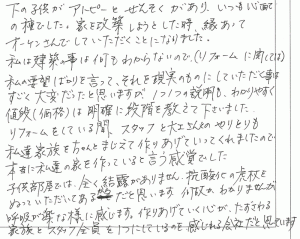 下の子供がアトピーとぜんそくがあり、いつも心配
の種でした。家を改築しようとした時、縁あって
オーケンさんでしていただくことになりました。
私は建築の事は何もわからないので、(リフォームに関しては)
私の要望ばかりを言って、それを現実のものにしていただく事は
すごく大変だったと思いますが 1つ1つの説明も、わかりやすく
値段(価格)は明確に段階を教えて下さいました。
リフォームをしている間 スタッフと大工さんとのやりとりも
私達家族をちゃんとまじえて作りあげていってくれましたので
本当に私達の家を作っていると言う感覚でした
子供部屋は、全く結露がありません。
ぬっていただいてある だと思います。何故かわかりませんが
呼吸が楽な様に感じます。作りあげていく心が、たずさわる
家族とスタッフ全員を1つにしているのを感じれる会社だと思います